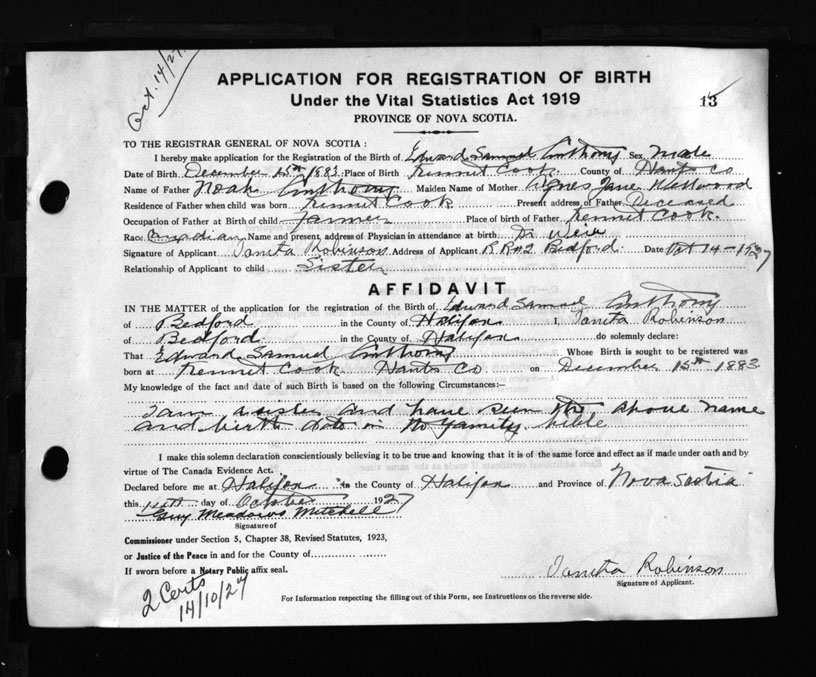 Oct. 14/27.
APPLICATION FOR REGISTRATION OF BIRTH
Under the Vital Statistics Act 1919
13
PROVINCE OF NOVA SCOTIA.
TO THE REGISTRAR GENERAL OF NOVA SCOTIA :
I hereby make application for the Registration of the Birth of Edward Samuel Anthony Sex Male
Date of Birth December 15th 1883 Place of Birth Kennet Cook County of Hants Co
Name of Father Noah Anthony Maiden Name of Mother Agnes Jane
Residence of Father when child was born Kennet Cook Present address of Father Deceased
Occupation of Father at Birth of child Farmer Place of birth of Father Kennet Cook.
Race Canadian Name and present address of Physician in attendance at birth Dr Weir
Signature of Applicant Robinson Address of Applicant R R #2 Bedford. Date Oct 14-1927
Relationship of Applicant to child Sister
AFFIDAVIT
IN THE MATTER of the application for the registration of the Birth of Edward Samuel Anthony
of Bedford in the County of Halifax I, Robinson
of Bedford in the County of Halifax do solemnly declare:
That Edward Samuel Anthony Whose Birth is sought to be registered was
born at Kennet Cook Hants Co on December 15th 1883
My knowledge of the fact and date of such Birth is based on the following Circumstances:—
I am a sister and have seen the above name
and birth date in the family bible
I make this solemn declaration conscientiously believing it to be true and knowing that it is of the same force and effect as if made under oath and by
virtue of The Canada Evidence Act.
Declared before me at Halifax in the County of Halifax and Province of Nova Scotia
this day of October 1927
Guy Meadows Mitchell
Signature of
Commissioner under Section 5, Chapter 38, Revised Statutes, 1923,
or Justice of the Peace in and for the County of
If sworn before a Notary Public affix seal.
Robinson
Signature of Applicant.
2 Certs
14/10/27
For Information respecting the filling out of this Form, see Instructions on the reverse side.